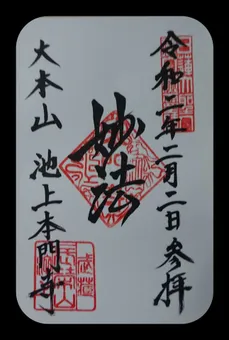 令和二年二月二日参拝
妙法
大本山 池上本門寺